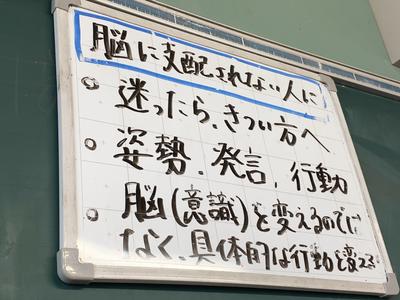 脳に支配されない人に
○ 迷ったら、きつい方へ
○ 姿勢、発言、行動
○ 脳(意識)を変えるのでは
なく、具体的な行動を変える